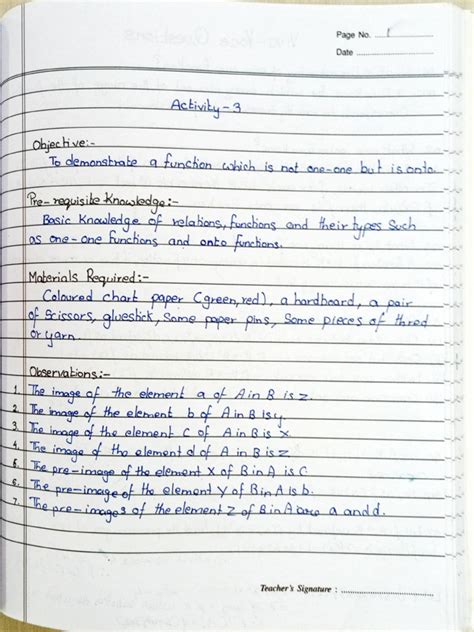 Page No. 1
Date
Activity - 3
Objective:-
To demonstrate a function which is not one-one but is onto.
Pre-requisite Knowledge:-
Basic Knowledge of relations, functions and their types Such
as one-one functions and onto functions.
Materials Required:-
Coloured chart paper (green, red), a hardboard, a pair
of Scissors, gluestick, Some paper pins, Some pieces of thred
or yarn.
Observations:-
1. The image of the element a of A in B is z.
2. The image of the element b of A in B is y.
3. The image of the element C of A in B is x.
4. The image of the element d of A in B is z
5. The pre-image of the element X of B in A is C
6. The pre-image of the element Y of B in A is b.
7. The pre-images of the element Z of B in A are a and d.
Teacher's Signature :